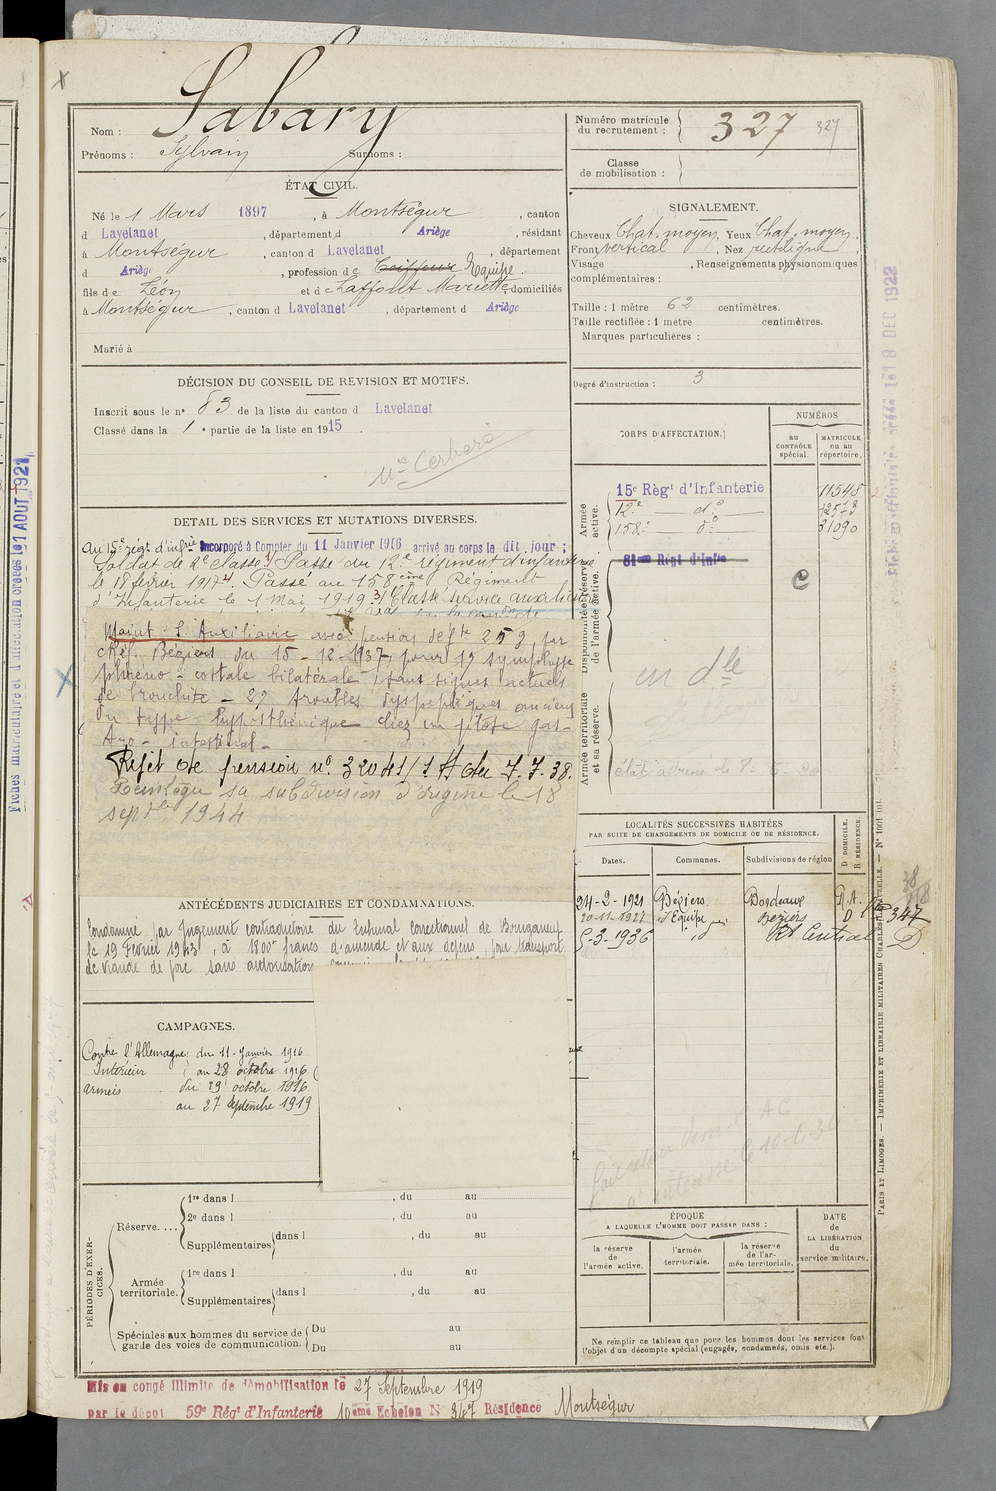 Sabary
Nom :
Prénoms : Sylvain Surnoms :
Numéro matricule du recrutement : 327 327
Classe de mobilisation :
ÉTAT CIVIL.
Né le 1 Mars 1897, à Montségur, canton
d Lavelanet, département d Ariège, résidant
à Montségur, canton d Lavelanet, département
d Ariège, profession de Coiffeur Equipe.
fils de Léon et de Laffont Mariette domiciliés
à Montségur, canton d Lavelanet, département d Ariège
Marié à
SIGNALEMENT.
Cheveux Chat. moyen, Yeux Chat. moyen,
Front vertical, Nez rectiligne
Visage , Renseignements physionomiques
complémentaires :
Taille : 1 mètre 62 centimètres.
Taille rectifiée : 1 mètre centimètres.
Marques particulières :
Degré d'instruction : 3
DÉCISION DU CONSEIL DE REVISION ET MOTIFS.
Inscrit sous le n° 83 de la liste du canton d Lavelanet
Classé dans la 1e partie de la liste en 1915.
CORPS D'AFFECTATION.
NUMÉROS
au CONTRÔLE spécial.
MATRICULE ou au répertoire.
Armée active.
15e Régt d'Infanterie 11548
12e do
158e do 31090
Disponibilité et réserve de l'armée active.
81eme Régt d'Infie
Armée territoriale et sa réserve.
DETAIL DES SERVICES ET MUTATIONS DIVERSES.
Au 15e régt d'infrie Incorporé à Compter du 11 Janvier 1916 arrivé au corps le dit jour ;
Soldat de 2e classe. Passé au 12e régiment d'infanterie
le 18 février 1917. Passé au 158ème Régiment
d'Infanterie le 1 Mai 1919. Classé service auxiliaire
Maint. S. Auxiliaire avec pension déf.
Réf. Béziers du 15-12-1937, pour 1° symphyse
phréno-costale bilatérale, sans signes actuels
de bronchite - 2° troubles dyspeptiques anciens
du type hyposthénique chez un ptosé gas-
tro-intestinal -
Rejet de pension n° 32041/1 A du 7.7.38.
sa subdivision d'origine le 18
sept 1944
ANTÉCÉDENTS JUDICIAIRES ET CONDAMNATIONS.
Condamné par Jugement contradictoire du Tribunal correctionnel de
le 19 Février 1943, à 1800 francs d'amende et aux dépens pour transport
de viande de porc sans autorisation
LOCALITÉS SUCCESSIVES HABITÉES
PAR SUITE DE CHANGEMENTS DE DOMICILE OU DE RÉSIDENCE.
Dates. Communes. Subdivisions de région D DOMICILE. R RÉSIDENCE.
24-2-1921 Béziers Bordeaux
20-11-1927 d'Equipe Beziers D 347
5-3-1936 id Rt Central D
CAMPAGNES.
Contre l'Allemagne du 11 Janvier 1916
Intérieur au 28 octobre 1916
armées du 29 octobre 1916
au 27 Septembre 1919
PÉRIODES D'EXERCICES.
Réserve....
1re dans l , du au
2e dans l , du au
Supplémentaires dans l , du au
Armée territoriale.
1re dans l , du au
Supplémentaires dans l , du au
Spéciales aux hommes du service de garde des voies de communication.
Du au
Du au
ÉPOQUE
A LAQUELLE L'HOMME DOIT PASSER DANS :
la réserve de l'armée active.
l'armée territoriale.
la réserve de l'armée territoriale.
DATE de LA LIBÉRATION du service militaire.
Ne remplir ce tableau que pour les hommes dont les services font
l'objet d'un décompte spécial (engagés, condamnés, omis etc.).
Mis en congé illimité de démobilisation le 27 Septembre 1919
par le dépôt 59e Régt d'Infanterie 10eme Echelon N° 347 Résidence Montségur
PARIS ET LIMOGES. — IMPRIMERIE ET LIBRAIRIE MILITAIRES CHARLES-LAVAUZELLE. —